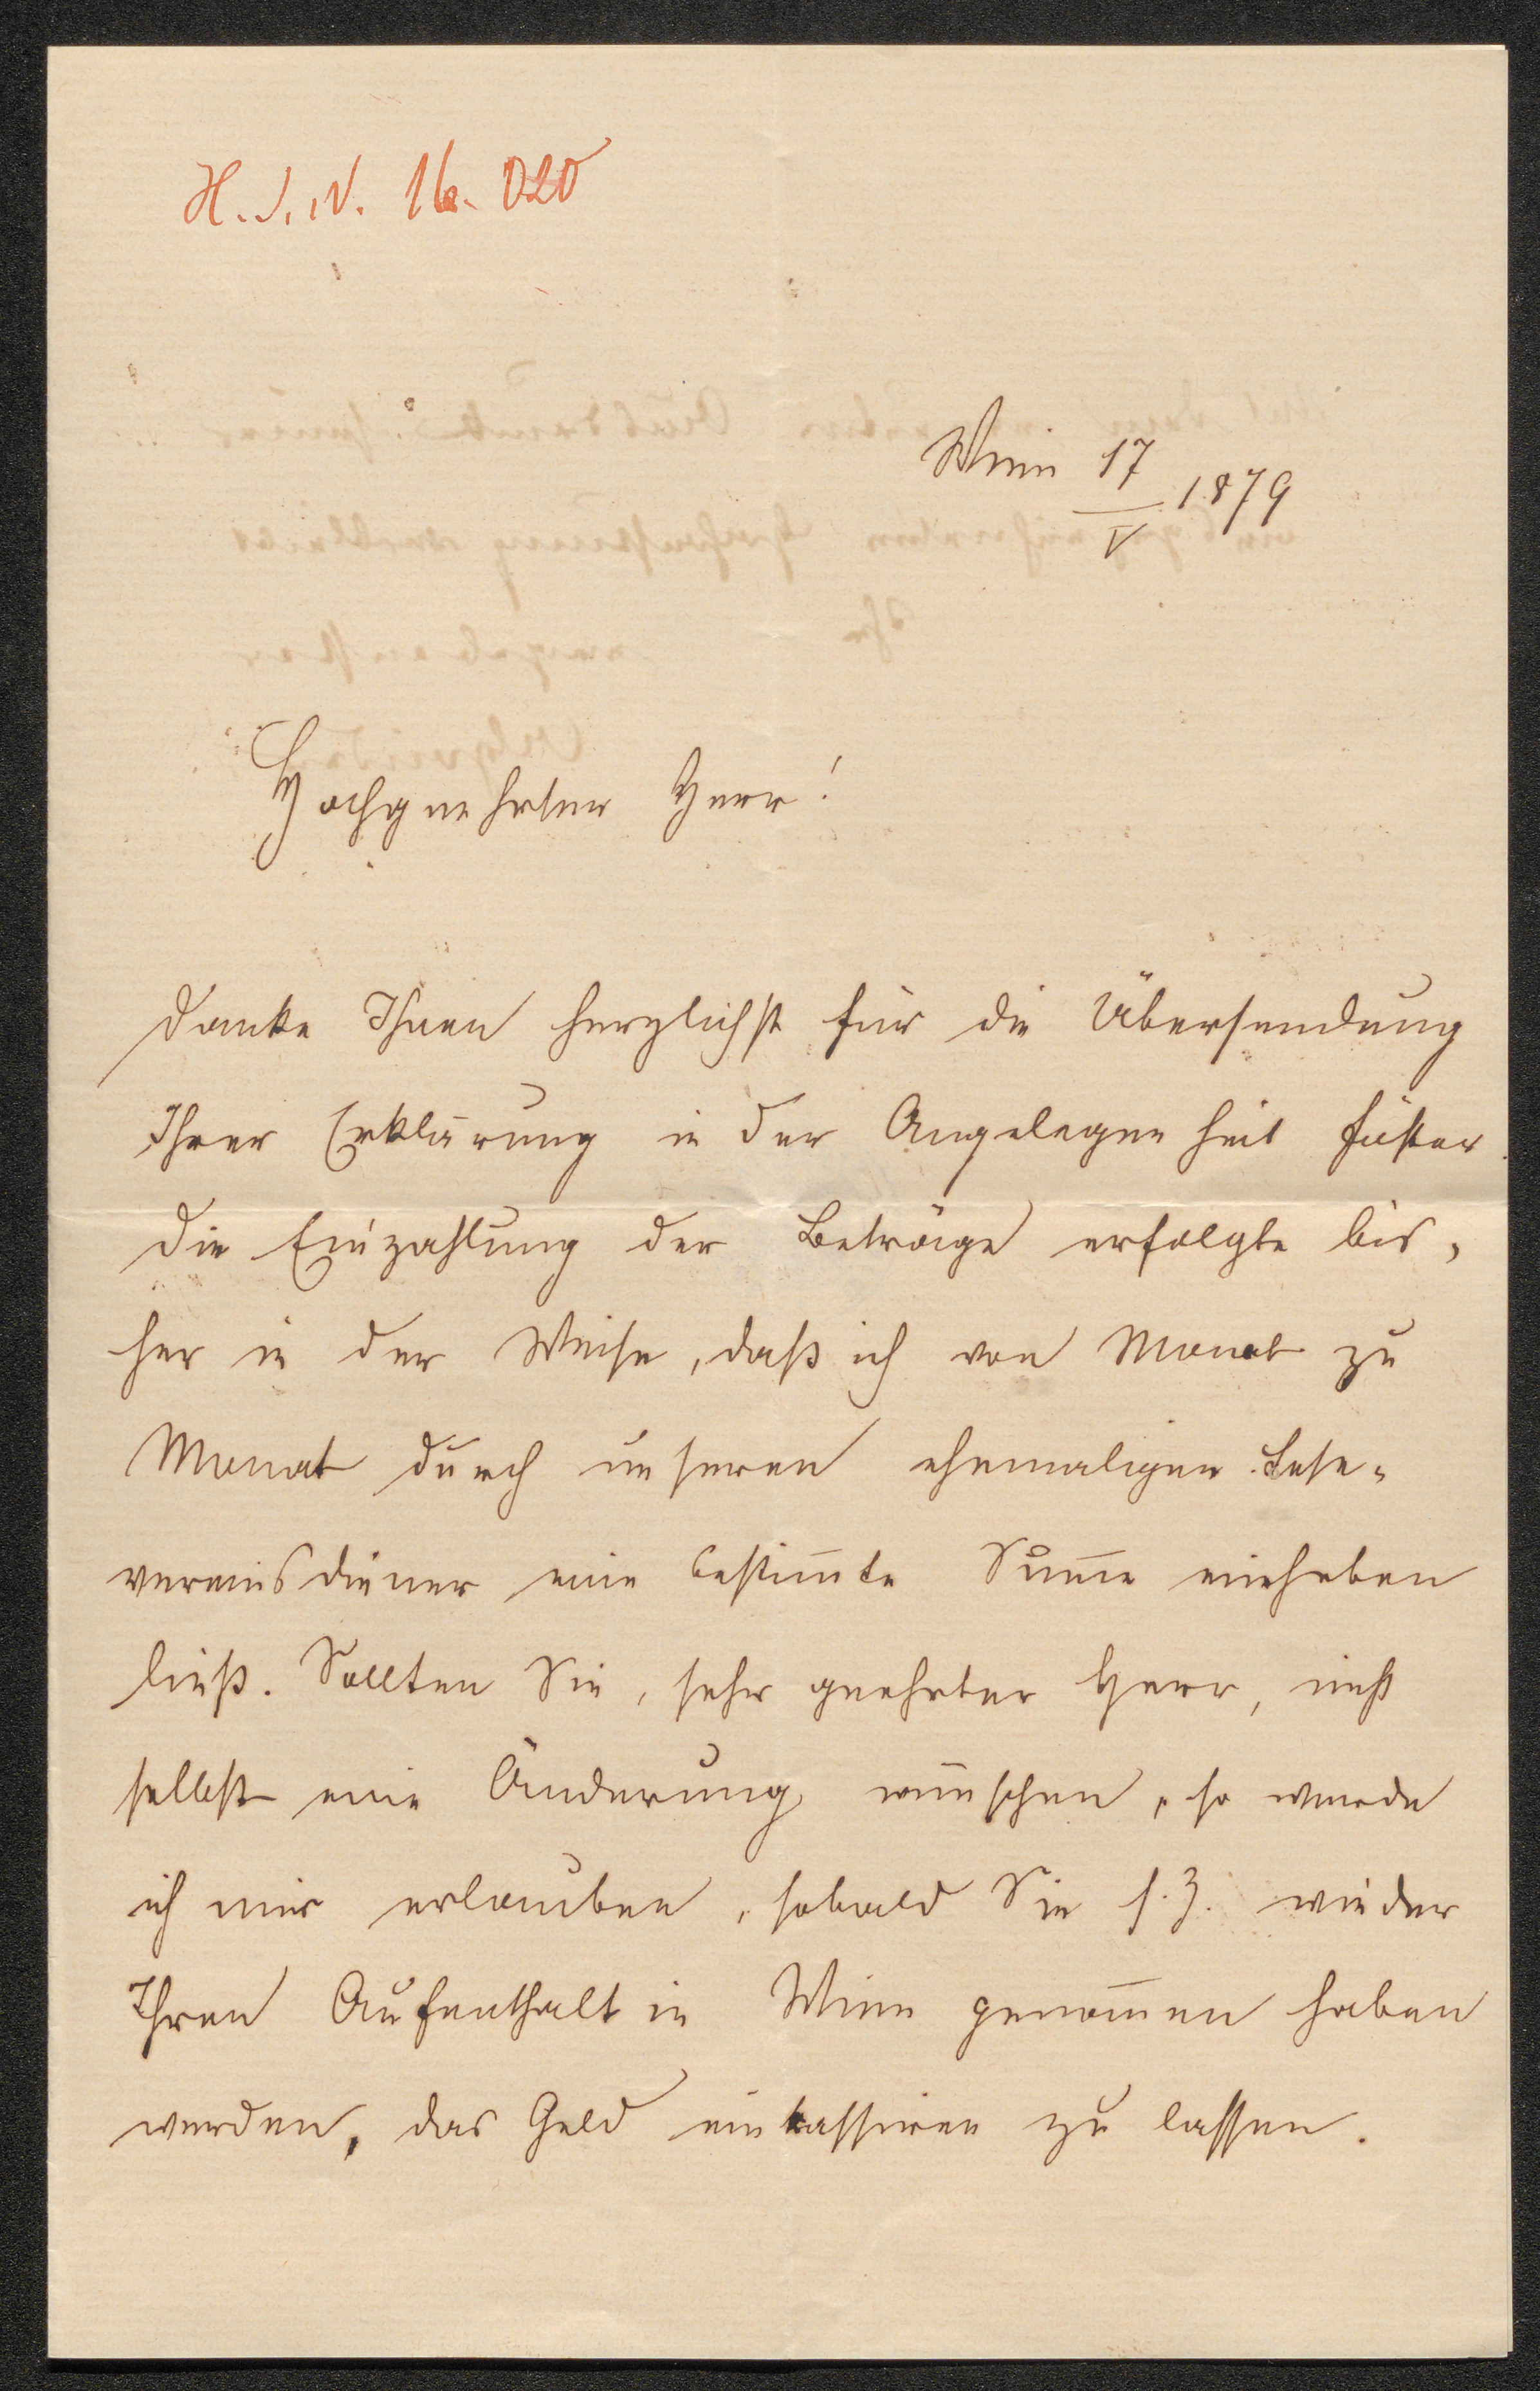 H.I.N. 16.020
Wien 17/V 1879
Hochgeehrter Herr!
Danke Ihnen herzlichst für die Übersendung
Ihrer Erklärung in der Angelegenheit Füster.
Die Einzahlung der Beträge erfolgte bis-
her in der Weise, daß ich von Monat zu
Monat durch unseren ehemaligen Lese-
vereinsdiener eine bestim̅te Sum̅e einheben
ließ. Sollten Sie, sehr geehrter Herr, nicht
selbst eine Änderung wünschen, so werde
ich mir erlauben, sobald Sie s. Z. wieder
Ihren Aufenthalt in Wien genom̅en haben
werden, das Geld einkassiren zu lassen.